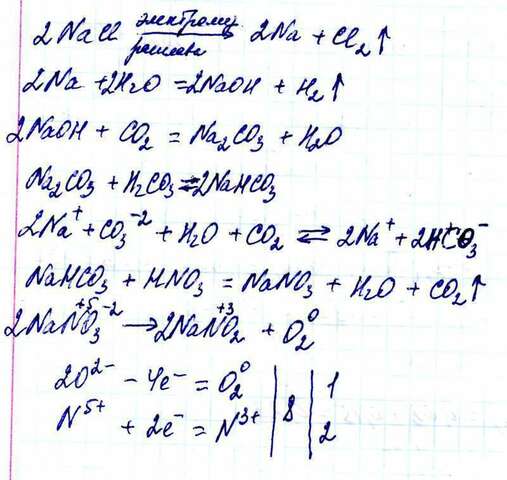 2NaCl электролиз расплава → 2Na + Cl₂↑
2Na + 2H₂O = 2NaOH + H₂↑
2NaOH + CO₂ = Na₂CO₃ + H₂O
Na₂CO₃ + H₂CO₃ ⇌ 2NaHCO₃
2Na⁺ + CO₃⁻² + H₂O + CO₂ ⇌ 2Na⁺ + 2HCO₃⁻
NaHCO₃ + HNO₃ = NaNO₃ + H₂O + CO₂↑
2NaN⁺⁵O₃⁻² → 2NaN⁺³O₂ + O₂⁰
2O²⁻ − 4e⁻ = O₂⁰ | 8 | 1
N⁵⁺ + 2e⁻ = N³⁺ | | 2